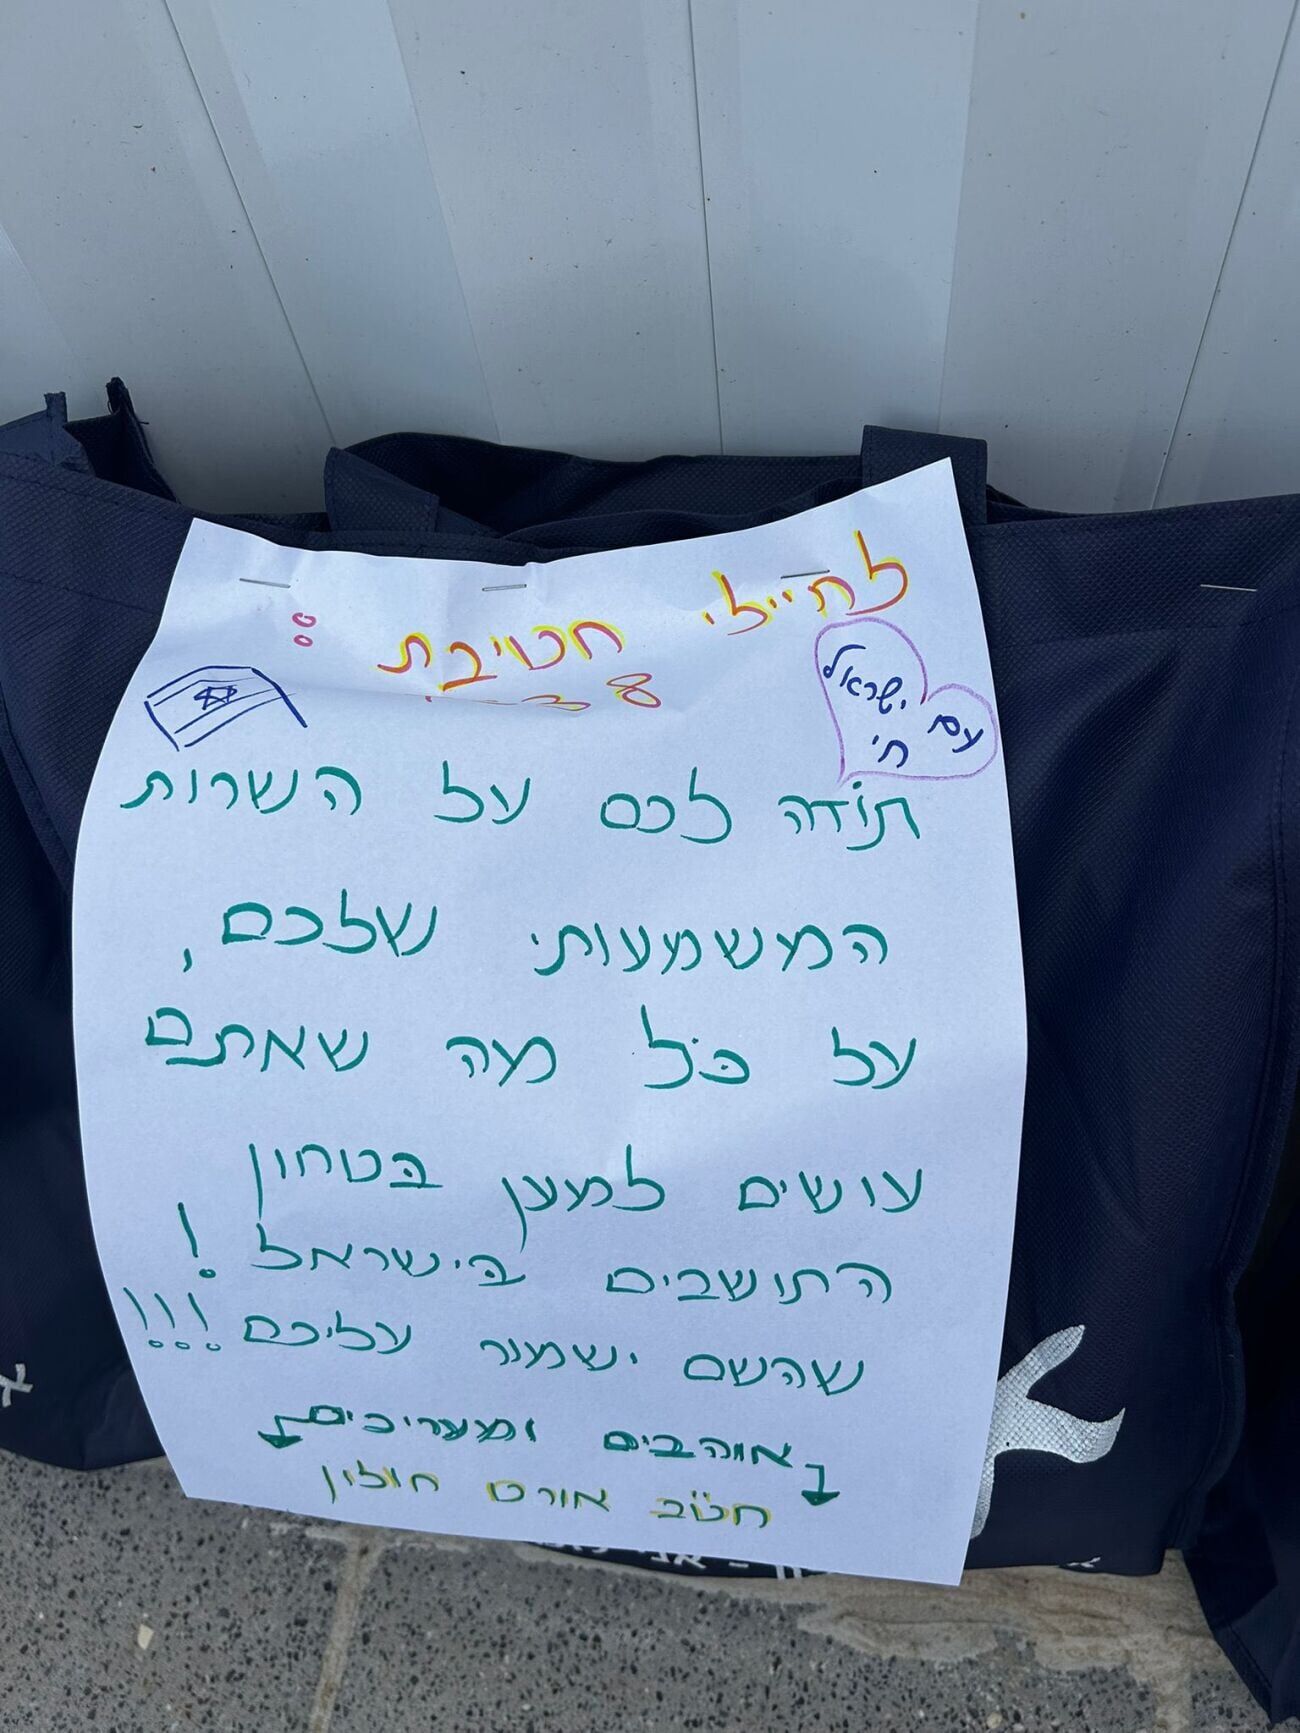 לחיילי חטיבת :
עם ישראל
חי
תודה לכם על השרות
המשמעותי שלכם,
על כל מה שאתם
עושים למען בטחון
התושבים בישראל !
שהשם ישמור עליכם !!!
אוהבים ומעריכים
חט"ב אורט חולון